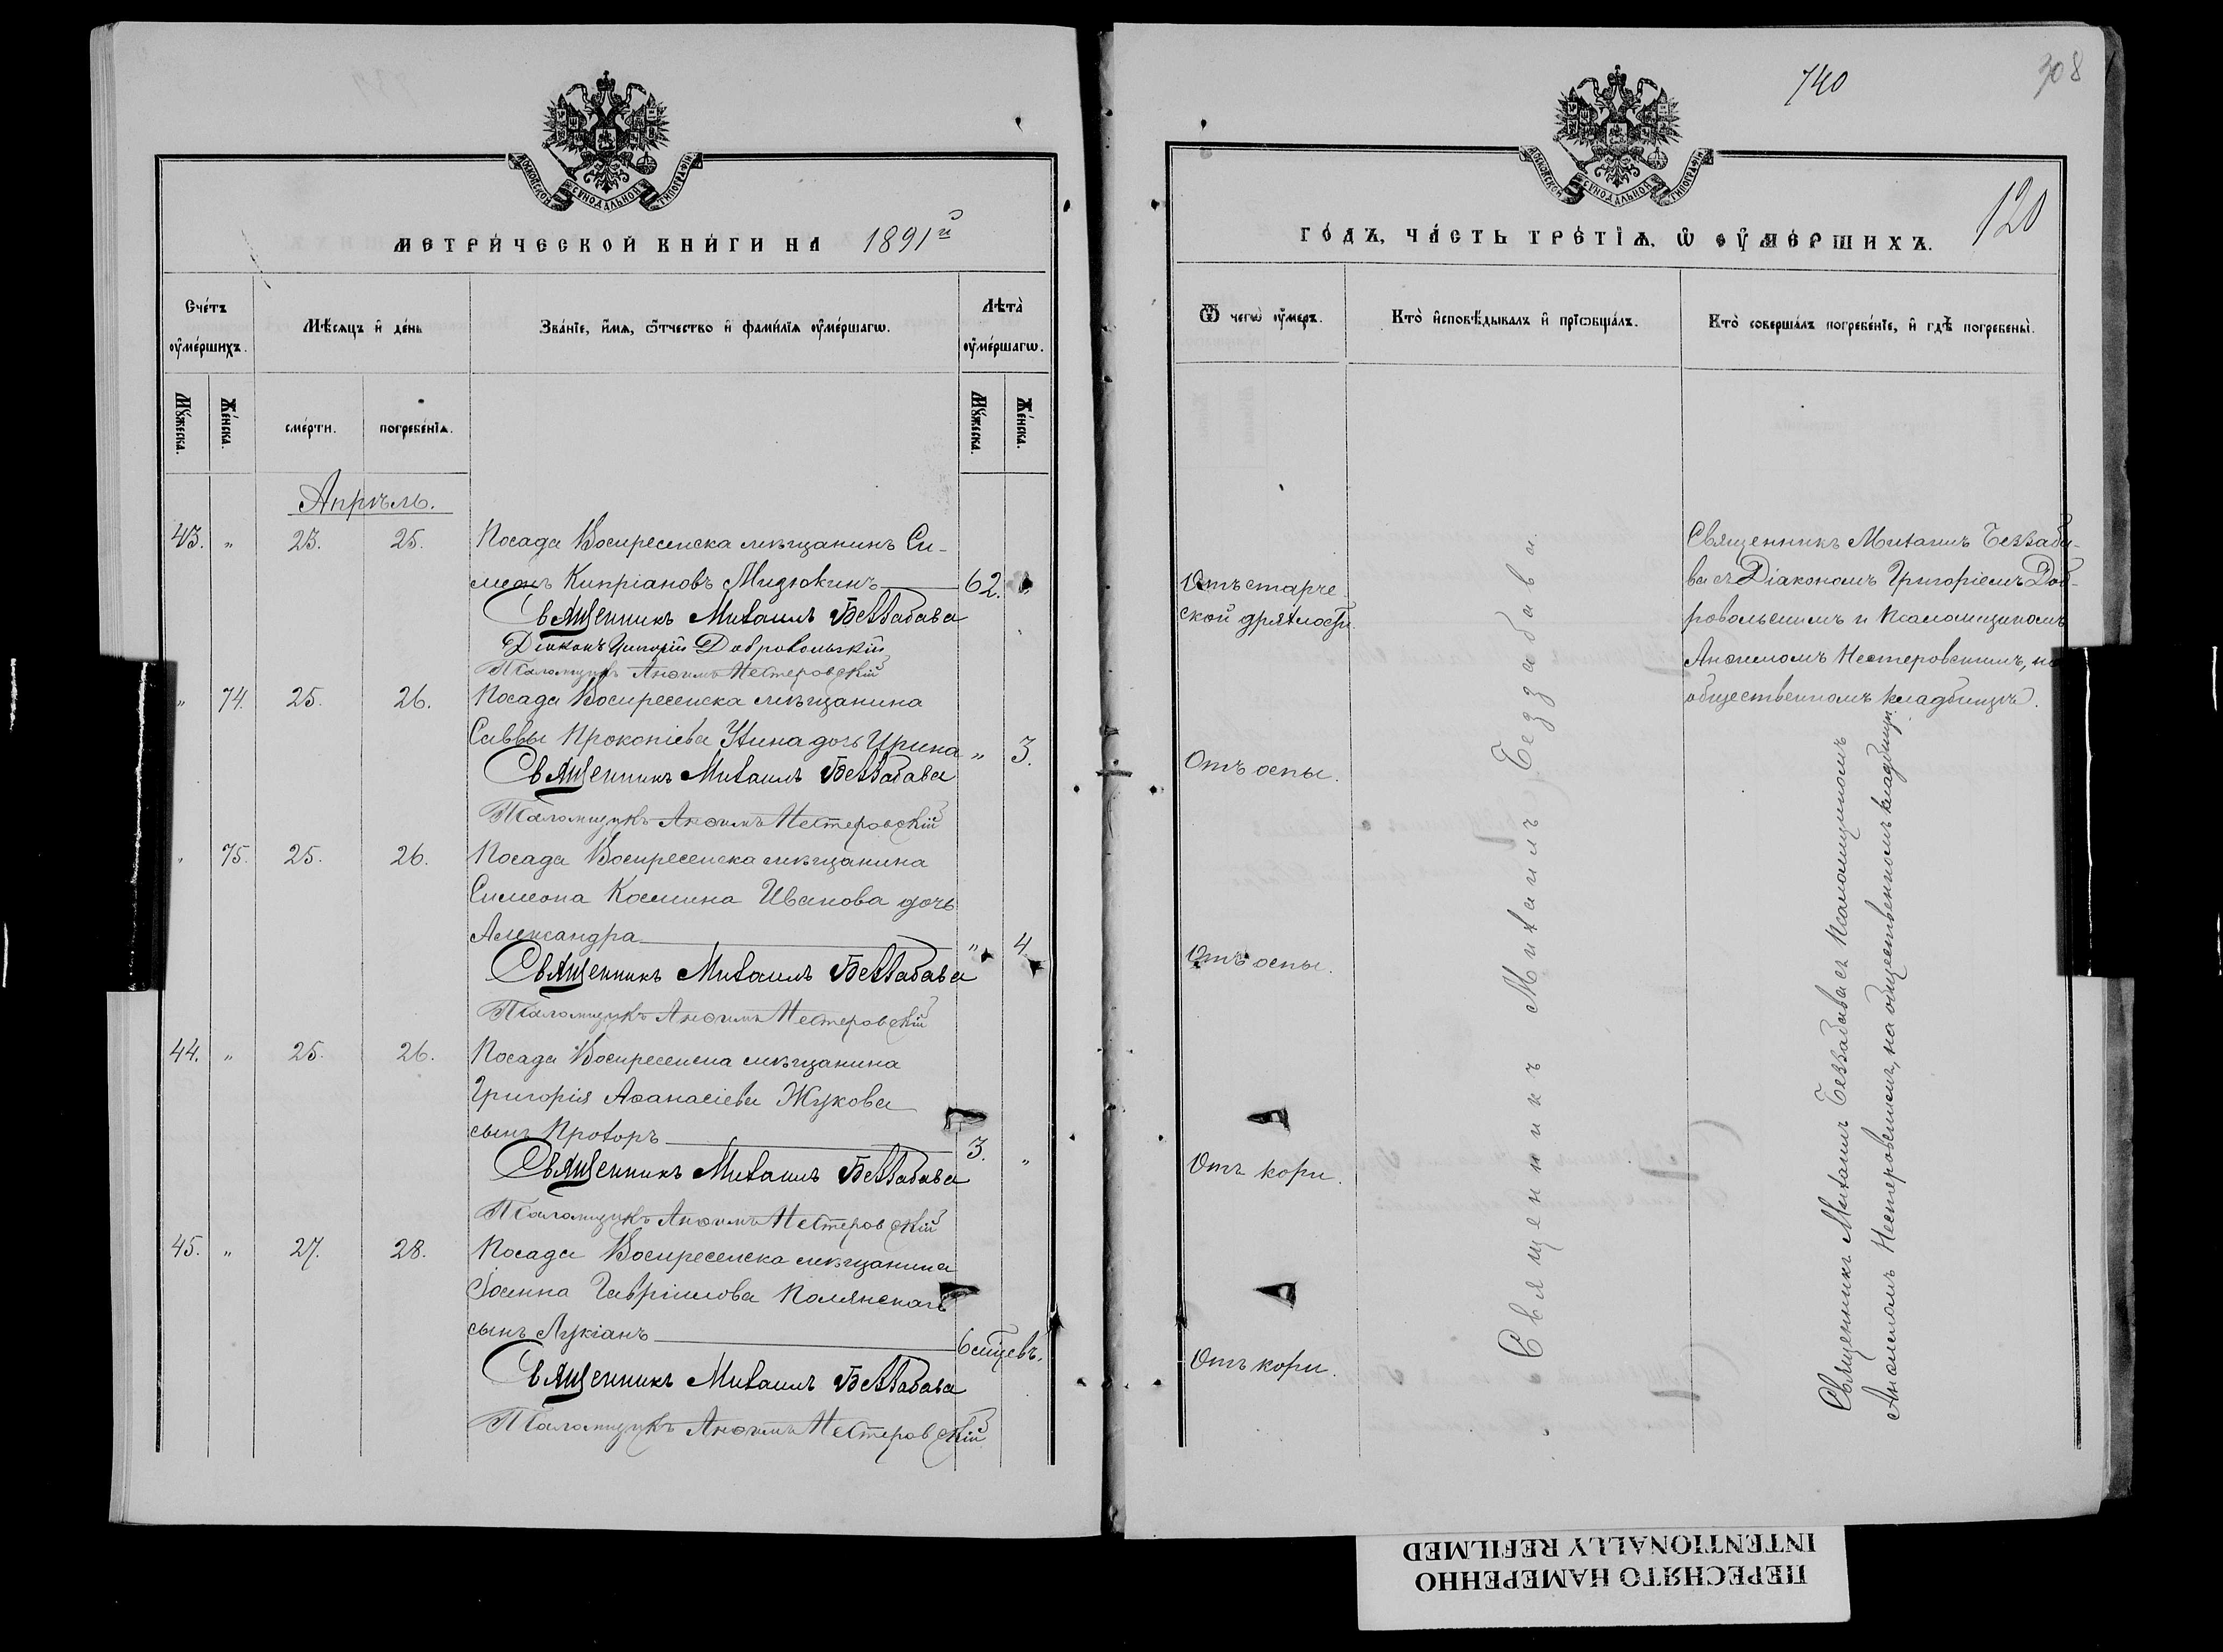 МОСКОВСКОЙ СѴНОДАЛЬНОЙ ТИПОГРАФІИ
МЕТРИ́ЧЕСКОЙ КНИ́ГИ НА 1891й
Сче́тъ ᲂу҆ме́ршихъ.
Мѣ́сяцъ и҆ де́нь
Зва́нїе, и҆́мѧ, ѻ҆́тчество и҆ фами́лїѧ ᲂу҆ме́ршагѡ.
Лѣта̀ ᲂу҆ме́ршагѡ.
Мꙋ́жеска. Же́нска. сме́рти. погребе́нїѧ. Мꙋ́жеска. Же́нска.
Апрѣль.
43. " 23. 25. Посада Воскресенска мѣщанинъ Си-
меонъ Кипріановъ Мидюкинъ 62.
Священникъ Михаилъ Беззабава
Діаконъ Григорій Добровольскій
Псаломщикъ Анѳимъ Нестеровскій
" 74. 25. 26. Посада Воскресенска мѣщанина
Саввы Прокопіева дочь Ирина " 3.
Священникъ Михаилъ Беззабава
Псаломщикъ Анѳимъ Нестеровскій
" 75. 25. 26. Посада Воскресенска мѣщанина
Симеона Космина Иванова дочь
Александра " 4.
Священникъ Михаилъ Беззабава
Псаломщикъ Анѳимъ Нестеровскій
44. " 25. 26. Посада Воскресенска мѣщанина
Григорія Аѳанасіева Жукова
сынъ Прохоръ 3. "
Священникъ Михаилъ Беззабава
Псаломщикъ Анѳимъ Нестеровскій
45. " 27. 28. Посада Воскресенска мѣщанина
Іоанна Гавріилова Полянскаго
сынъ Лукіанъ 6 мѣсцевъ.
Священникъ Михаилъ Беззабава
Псаломщикъ Анѳимъ Нестеровскій
740
308
МОСКОВСКОЙ СѴНОДАЛЬНОЙ ТИПОГРАФІИ
120
ГО́ДЪ, ЧА́СТЬ ТРЕ́ТЇѦ, Ѡ҆ ᲂУ҆МЕ́РШИХЪ.
Ѿ чегѡ̀ ᲂу҆́меръ.
Кто̀ и҆сповѣ́дывалъ и҆ прїѻбща́лъ.
Кто̀ соверша́лъ погребе́нїе, и҆ гдѣ̀ погребены̀.
Отъ старче
ской дряхлости.
Отъ оспы.
Отъ оспы.
Отъ кори.
Отъ кори.
Священникъ Михаилъ Беззабава.
Священникъ Михаилъ Беззаба-
ва съ Діакономъ Григоріемъ Доб-
ровольскимъ и Псаломщикомъ
Анѳимомъ Нестеровскимъ, на
общественномъ кладбищѣ.
Священникъ Михаилъ Беззабава съ Псаломщикомъ
Анѳимомъ Нестеровскимъ, на общественномъ кладбищѣ.
ПЕРЕСНЯТО НАМЕРЕННО
INTENTIONALLY REFILMED